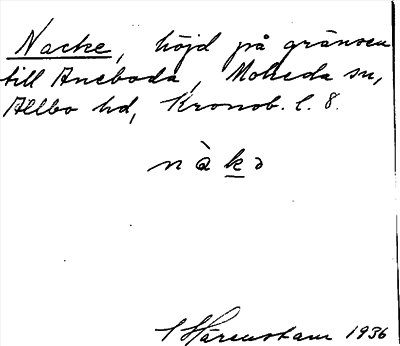 Nacke, höjd på gränsen
till Aneboda, Moheda sn,
Allbo hd, Kronob. l. 8.
nàkɔ
S Härenstam 1936